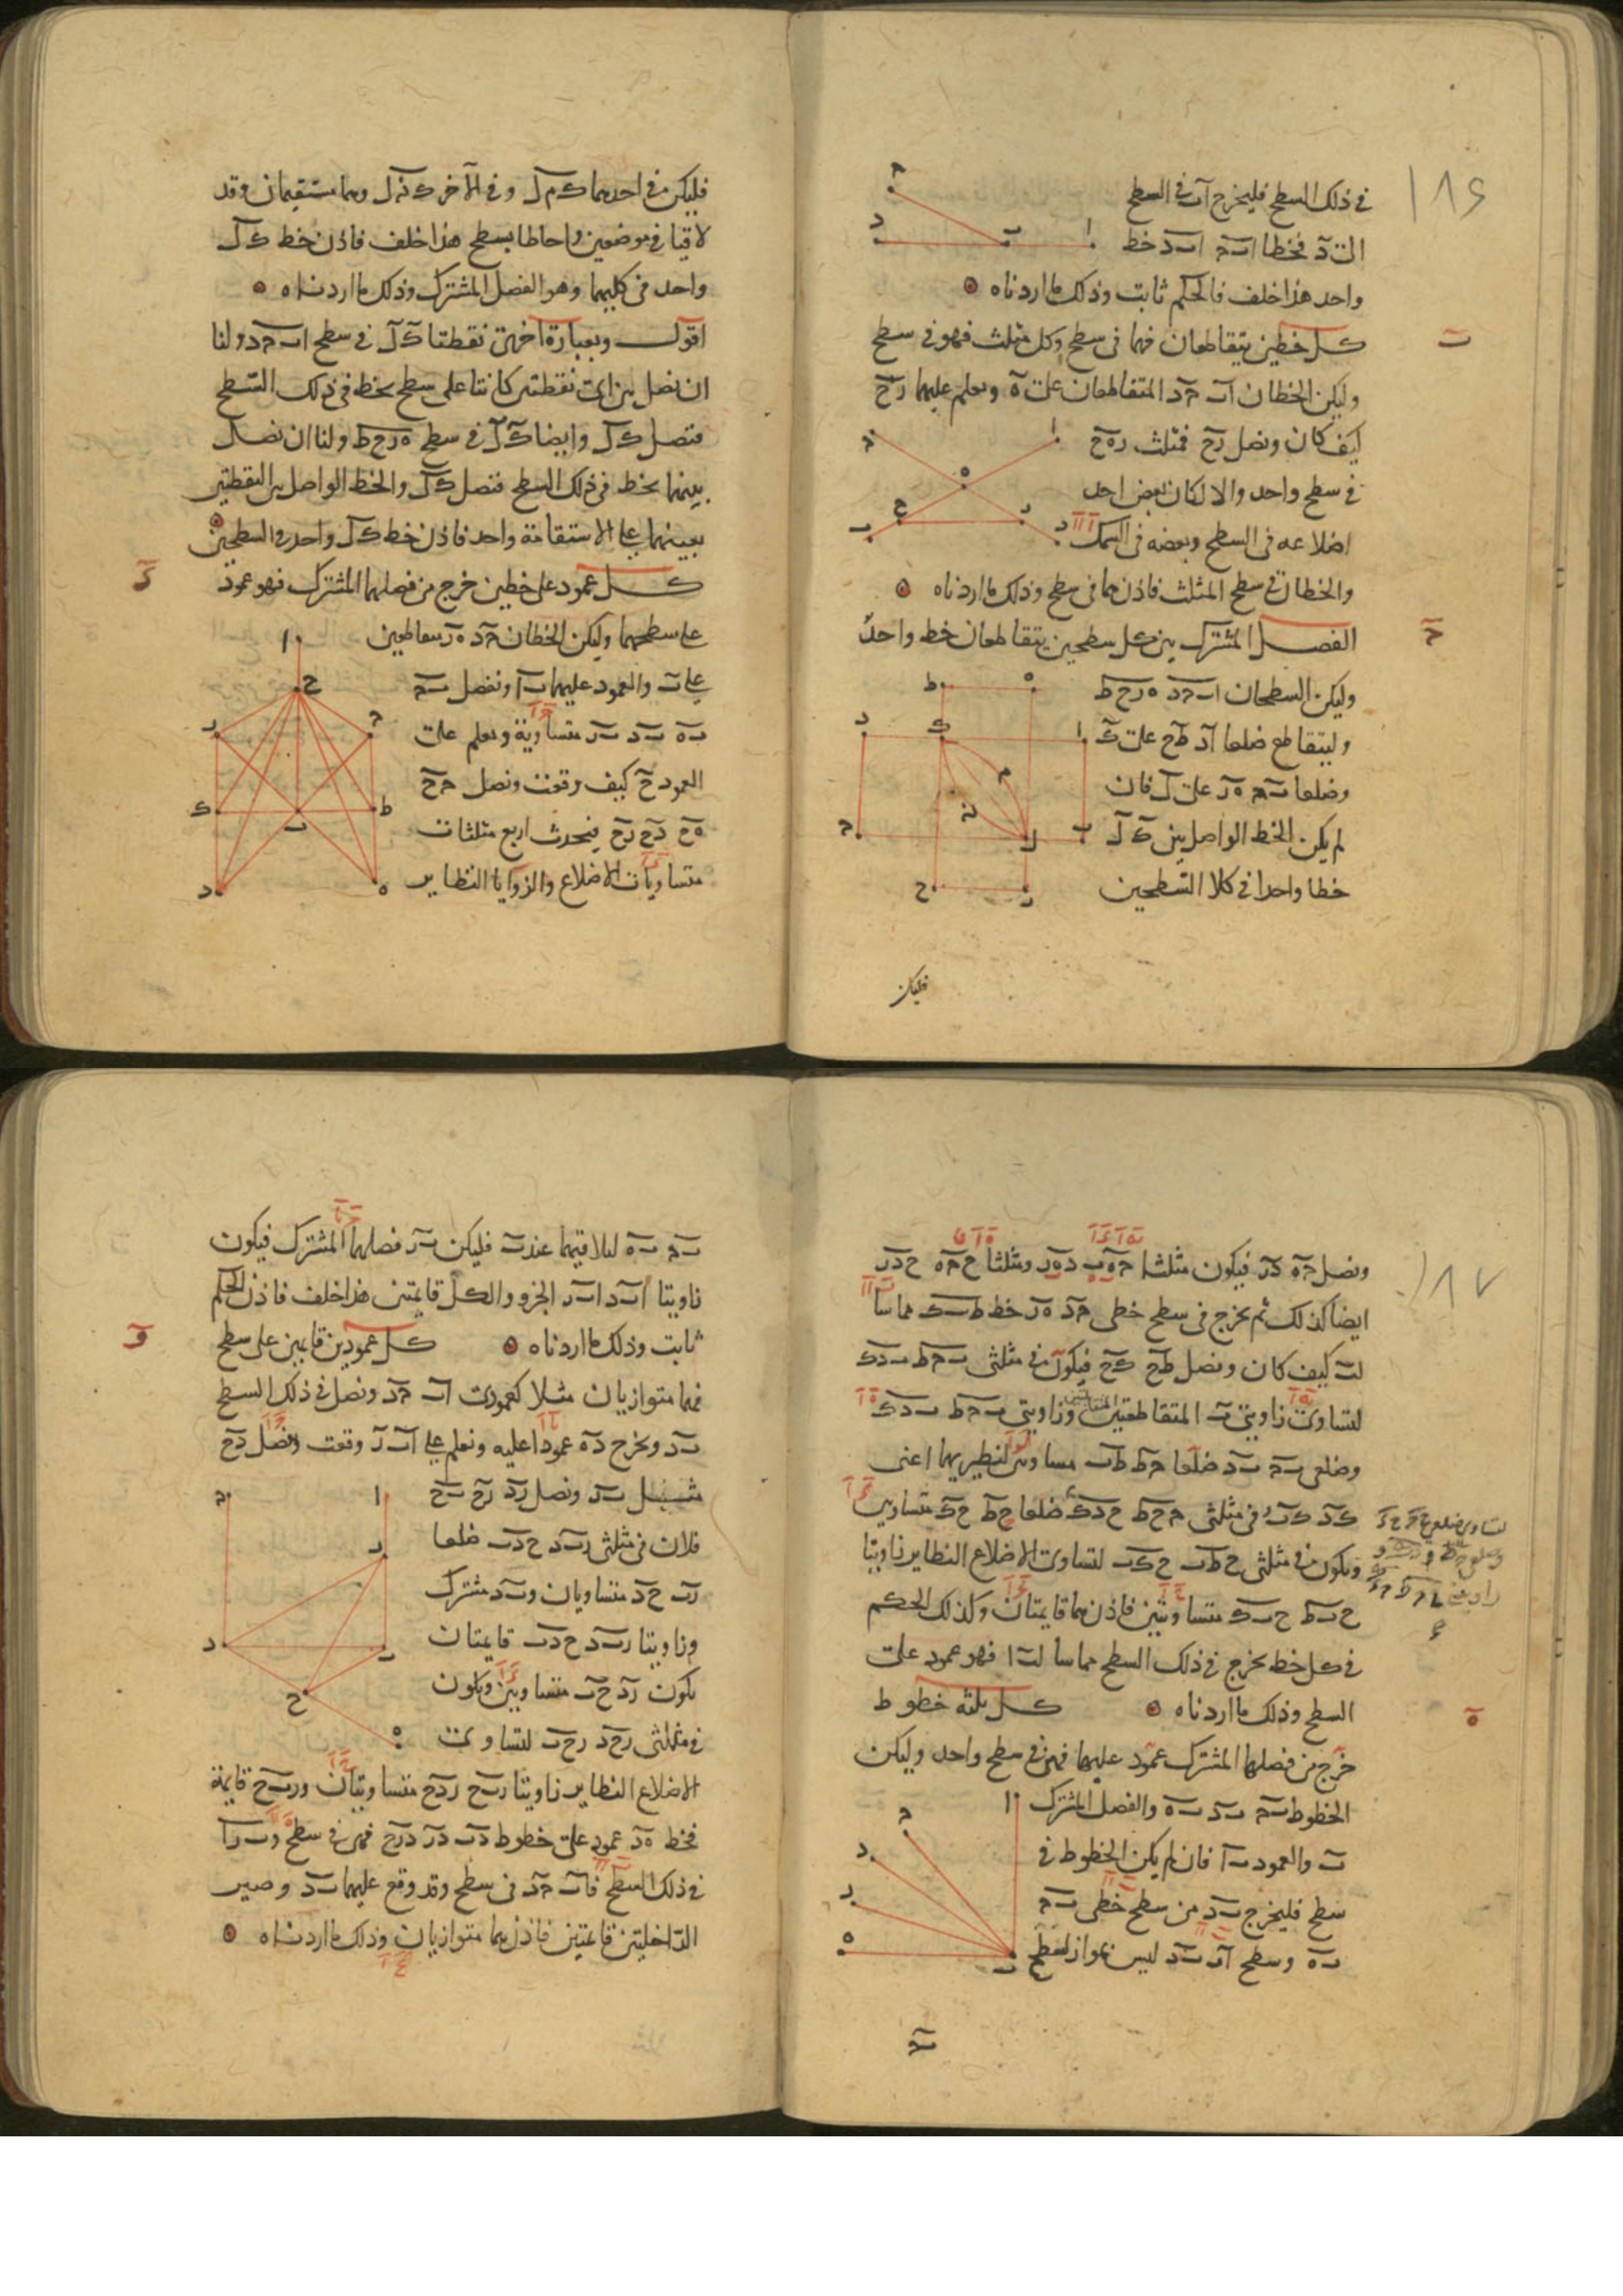 ١٨٤
في ذلك السطح فليخرج اب في السطح
الى د فخطا اب ج اب د خط
واحد هذا خلف فالحكم ثابت وذلك ما اردناه
ب
كل خطين يتقاطعان فهما في سطح وكل مثلث فهو في سطح
وليكن الخطان اب ج د المتقاطعان على ه ونعلم عليهما ز ح
كيف كان ونصل ز ح فمثلث ز ه ح
في سطح واحد والا لكان بعض احد
اضلاعه في السطح وبعضه في السمك
والخطان في سطح المثلث فاذن هما في سطح وذلك ما اردناه
ج
الفصل المشترك بين كل سطحين يتقاطعان خط واحد
وليكن السطحان اب ج د ه ز ح ط
وليتقاطع ضلعا اد ط ح على ك
وضلعا ب ج ه ز على ل فان
لم يكن الخط الواصل بين ك ل
خطا واحدا في كلا السطحين
فليكن
فليكن في احدهما ك م ل وفي الآخر ك ن ل وهما مستقيمان وقد
لاقيا في موضعين واحاطا بسطح هذا خلف فاذن خط ك ل
واحد في كليهما وهو الفصل المشترك وذلك ما اردناه
اقول وبعبارة اخرى نقطتا ك ل في سطح اب ج د ولنا
ان نصل بين اى نقطتين كانتا على سطح بخط في ذلك السطح
فنصل ك ل وايضا ك ل في سطح ه ز ح ط ولنا ان نصل
بينهما بخط في ذلك السطح فنصل ك ل والخط الواصل بين النقطتين
بعينهما على الاستقامة واحد فاذن خط ك ل واحد في السطحين
د
كل عمود على خطين خرج من فصلهما المشترك فهو عمود
على سطحهما وليكن الخطان ج د ه ز متقاطعين
على ب والعمود عليهما ب ا ونفصل ب ج
ب ه ب د ب ز متساوية ونعلم على
العمود ح كيف وقعت ونصل ج ح
ه ح د ح ز ح فيحدث اربع مثلثات
متساويات الاضلاع والزوايا النظاير
١٨٧
ونصل ج ه د ز فيكون مثلثا ج ه ب د ب ز ومثلثا ح ج ه ح د ز
ايضا كذلك ثم نخرج في سطح خطى ج د ه ز خط ط ب ك مماسا
لب كيف كان ونصل ط ح ك ح فيكون في مثلثى ب ج ط ب د ك
لتساوى زاويتى ب المتقاطعتين وزاويتى ب ج ط ب د ك
وضلعى ب ج ب د ضلعا ج ط ط ب مساويين لنظيريهما اعنى
ك د ك ب وفي مثلثى ج ح ط ح د ك ضلعا ح ط ح ك متساويين
ويكون في مثلثى ح ط ب ح ك ب لتساوى الاضلاع النظاير زاويتا
ح ب ط ح ب ك متساويتين فاذن هما قايمتان وكذلك الحكم
في كل خط يخرج في ذلك السطح مماسا لب ا فهو عمود على
السطح وذلك ما اردناه كل ثلثة خطوط
ه
خرج من فصلها المشترك عمود عليها فهى في سطح واحد وليكن
الخطوط ب ج ب د ب ه والفصل المشترك
ب والعمود ب ا فان لم يكن الخطوط في
سطح فليخرج ب د من سطح خطى ب ج
ب ه وسطح اب ب د ليس بمواز لسطح
ب ج ب ه لتلاقيهما عند ب فليكن ب ز فصلهما المشترك فيكون
زاويتا ا ب د ا ب ز الجزء والكل قايمتين هذا خلف فاذن الحكم
ثابت وذلك ما اردناه كل عمودين قايمين على سطح
و
فهما متوازيان مثلا كعمودى اب ج د ونصل في ذلك السطح
ب د ونخرج د ه عمودا عليه ونعلم على اب ز وقعت ونفصل د ح
مثل ب ز ونصل ز د ز ح ب ح
فلان في مثلثى ز ب د ح د ب ضلعا
ز ب ح د متساويان وب د مشترك
وزاويتا ز ب د ح د ب قايمتان
يكون ز د ح ب متساويين ويكون
في مثلثى ز ح د ز ح ب لتساوى
الاضلاع النظاير زاويتا ز ب ح ز د ح متساويتان وز ب ح قايمة
فخط ه د عمود على خطوط د ب د ز د ج فهى في سطح وب ز ا
في ذلك السطح فاب ج د في سطح وقد وقع عليهما ب د وصير
الداخلتين قايمتين فاذن هما متوازيان وذلك ما اردناه